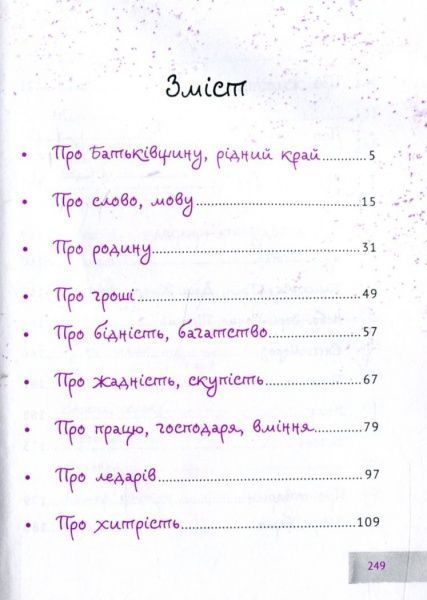 Зміст
• Про Батьківщину, рідний край............5
• Про слово, мову..............................15
• Про родину......................................31
• Про гроші........................................49
• Про бідність, багатство....................57
• Про жадність, скупість.....................67
• Про працю, господаря, вміння..........79
• Про ледарів.....................................97
• Про хитрість..................................109
249